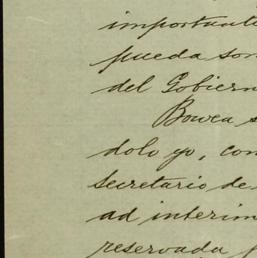 important
pueda son
del Gobiern
Bowen s
dolo yo, con
secretario de
ad interim
reservada